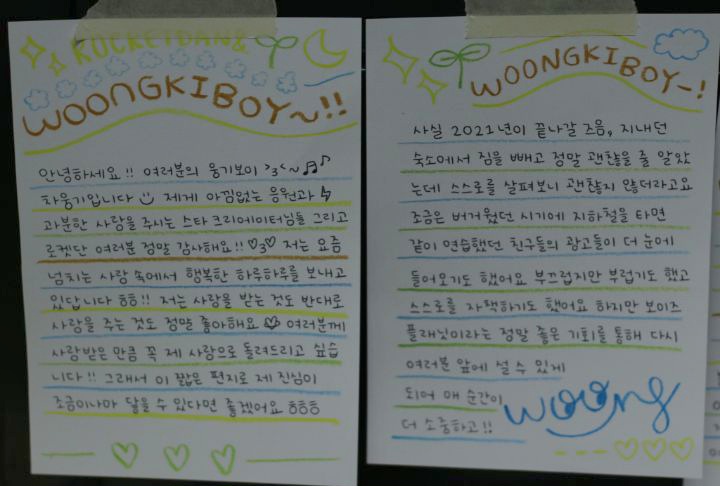 ROCKETDAN&
WOONGKIBOY~!!
안녕하세요!! 여러분의 웅기보이 >3<~♬♪
차웅기입니다 제게 아낌없는 응원과
과분한 사랑을 주시는 스타 크리에이터님들 그리고
로켓단 여러분 정말 감사해요!! ♡3♡ 저는 요즘
넘치는 사랑 속에서 행복한 하루하루를 보내고
있답니다 ㅎㅎ!! 저는 사랑을 받는 것도 반대로
사랑을 주는 것도 정말 좋아해요 여러분께
사랑받은 만큼 꼭 제 사랑으로 돌려드리고 싶습
니다!! 그래서 이 짧은 편지로 제 진심이
조금이나마 닿을 수 있다면 좋겠어요 ㅎㅎㅎ
WOONGKIBOY-!
사실 2021년이 끝나갈 즈음, 지내던
숙소에서 짐을 빼고 정말 괜찮을 줄 알았
는데 스스로를 살펴보니 괜찮지 않더라고요
조금은 버거웠던 시기에 지하철을 타면
같이 연습했던 친구들의 광고들이 더 눈에
들어오기도 했어요 부끄럽지만 부럽기도 했고
스스로를 자책하기도 했어요 하지만 보이즈
플래닛이라는 정말 좋은 기회를 통해 다시
여러분 앞에 설 수 있게
되어 매 순간이
더 소중하고!!
woong